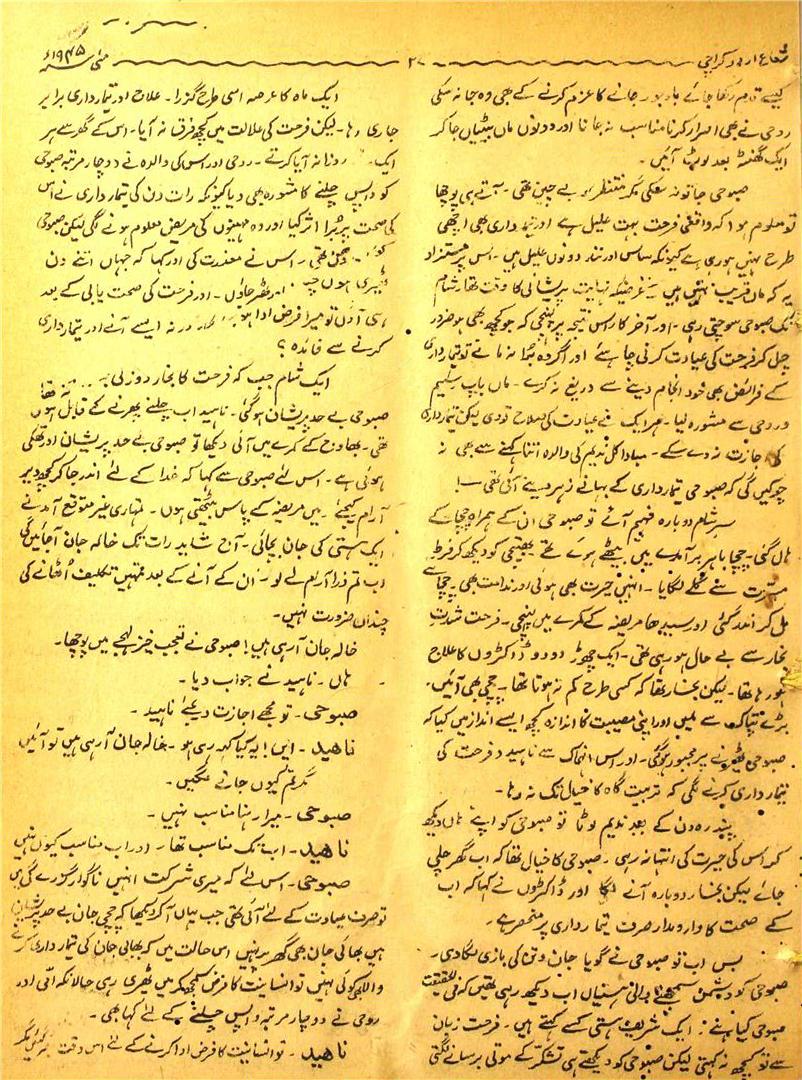 شعاع اردو کراچی
۲۷
مئی ۱۹۴۵ء
کیسے قدم رکھا جائے باوجود جانے کا عزم کرنے کے بھی وہ جا نہ سکی
روحی نے بھی اصرار کرنا مناسب نہ جانا اور دونوں ماں بیٹیاں جا کر
ایک گھنٹہ بعد لوٹ آئیں۔
صبوحی جا تو نہ سکی مگر منتظر اور بے چین تھی۔ آتے ہی پوچھا
تو معلوم ہوا کہ واقعی فرحت بہت علیل ہے اور تیمار داری بھی اچھی
طرح نہیں ہو رہی ہے کیونکہ ساس اور نند دونوں علیل ہیں۔ اس پر مستزاد
یہ کہ ماں قریب نہیں ہیں غرضیکہ نہایت پریشانی کا وقت تھا۔ شام
تک صبوحی سوچتی رہی۔ اور آخر کار اس نتیجہ پر پہنچی کہ جو کچھ بھی ہو ضرور
چل کر فرحت کی عیادت کرنی چاہئے اور اگر وہ بُرا نہ مانے تو تیمار داری
کے فرائض بھی خود انجام دینے سے دریغ نہ کرے۔ ماں باپ سلیم
و روحی سے مشورہ لیا۔ ہر ایک نے عیادت کی صلاح تو دی لیکن تیمار داری
کی اجازت نہ دے سکے۔ مبادا کل ندیم کی والدہ اتنا کہنے سے بھی نہ
چوکیں گی کہ صبوحی تیمار داری کے بہانے زہر دینے آئی تھی۔!
سر شام دوبارہ فہیم آئے تو صبوحی ان کے ہمراہ چچا کے
ہاں گئی۔ چچا باہر برآمدے میں بیٹھے ہوئے تھے۔ بھتیجی کو دیکھ کر فرط
مسرت سے گلے لگایا۔ انہیں حیرت بھی ہوئی اور ندامت بھی۔ چچا سے
مل کر اندر گئی اور سیدھا مریضہ کے کمرے میں پہنچی۔ فرحت شدت
بخار سے بے حال ہو رہی تھی۔ ایک چھوڑ دو دو ڈاکٹروں کا علاج
ہو رہا تھا۔ لیکن بخار تھا کہ کسی طرح کم نہ ہوتا تھا۔ چچی بھی آئیں۔
بڑے تپاک سے ملیں اور اپنی مصیبت کا اندازہ کچھ ایسے انداز میں کیا کہ
صبوحی ٹھہرنے پر مجبور ہو گئی۔ اور اس انہماک سے ناہید و فرحت کی
تیمار داری کرنے لگی کہ تربیت گاہ کا خیال تک نہ رہا۔
پندرہ دن کے بعد ندیم لوٹا تو صبوحی کو اپنے ہاں دیکھ
کر اس کی حیرت کی انتہا نہ رہی۔ صبوحی کا خیال تھا کہ اب گھر چلی
جائے لیکن بخار دوبارہ آنے لگا اور ڈاکٹروں نے کہا کہ اب
کے صحت کا دارومدار صرف تیمار داری پر منحصر ہے۔
بس اب تو صبوحی نے گویا جان و تن کی بازی لگا دی۔
صبوحی کو دشمن سمجھنے والی ہستیاں اب دیکھ رہی تھیں کہ فی الحقیقت
صبوحی کیا ہے؟ ایک شریف ہستی کسے کہتے ہیں۔ فرحت زبان
سے تو کچھ نہ کہتی لیکن صبوحی کو دیکھتے ہی تشکر کے موتی برسانے لگتی
ایک ماہ کا عرصہ اسی طرح گزرا۔ علاج اور تیمار داری برابر
جاری رہا۔ لیکن فرحت کی علالت میں کچھ فرق نہ آیا۔ اس کے گھر سے ہر
ایک روزانہ آیا کرتے۔ روحی اور اس کی والدہ نے دو چار مرتبہ صبوحی
کو واپس چلنے کا مشورہ بھی دیا کیونکہ رات دن کی تیمار داری نے اس
کی صحت پر بُرا اثر کیا اور وہ مہینوں کی مریض معلوم ہونے لگی لیکن صبوحی
کو دھن تھی۔ اس نے معذرت کی اور کہا کہ جہاں اتنے دن
ٹھیری ہوں اور ٹھہر جاؤں۔ اور فرحت کی صحت یابی کے بعد
ہی آؤں تو میرا فرض ادا ہو ورنہ ایسے آنے اور تیمار داری
کرنے سے فائدہ؟
ایک شام جب کہ فرحت کا بخار زور تھا
صبوحی بے حد پریشان ہو گئی۔ ناہید اب چلنے پھرنے کے قابل ہو
تھی۔ بھاوج کے کمرے میں آئی دیکھا تو صبوحی بے حد پریشان اور تھکی
ہوئی ہے۔ اس لئے صبوحی سے کہا کہ خدا کے لئے اندر جا کر کچھ دیر
آرام کیجئے۔ میں مریضہ کے پاس بیٹھتی ہوں۔ تمہاری غیر متوقع آمد نے
ایک ہستی کی جان بچائی۔ آج شاید رات تک خالہ جان آ جائیں گی
اب تم ذرا آرام لے لو۔ اُن کے آنے کے بعد تمہیں تکلیف اُٹھانے کی
چنداں ضرورت نہیں۔
خالہ جان آ رہی ہیں! صبوحی نے تعجب خیز لہجے میں پوچھا۔
ہاں۔ ناہید نے جواب دیا۔
صبوحی۔ تو مجھے اجازت دیجئے ناہید۔
ناہید۔ ایں! یہ کیا کہہ رہی ہو۔ خالہ جان آ رہی ہیں تو آئیں
مگر تم کیوں جانے لگیں۔
صبوحی۔ میرا رہنا مناسب نہیں۔
ناہید۔ اب تک مناسب تھا۔ اور اب مناسب کیوں نہیں
صبوحی۔ اس لئے کہ میری شرکت انہیں ناگوار گزرے گی میں
تو صرف عیادت کے لئے آئی تھی جب یہاں آ کر دیکھا کہ چچی جان بے حد پریشان
ہیں بھائی جان بھی گھر پر نہیں اس حالت میں کہ بھابی جان کی تیمار داری کرنے
والا بھی کوئی نہیں تو انسانیت کا فرض سمجھ کر میں ٹھری رہی حالانکہ امی اور
روحی نے دو چار مرتبہ واپس چلنے کے لئے کہا بھی۔
ناہید۔ تو انسانیت کا فرض ادا کرنے کے لئے اس وقت